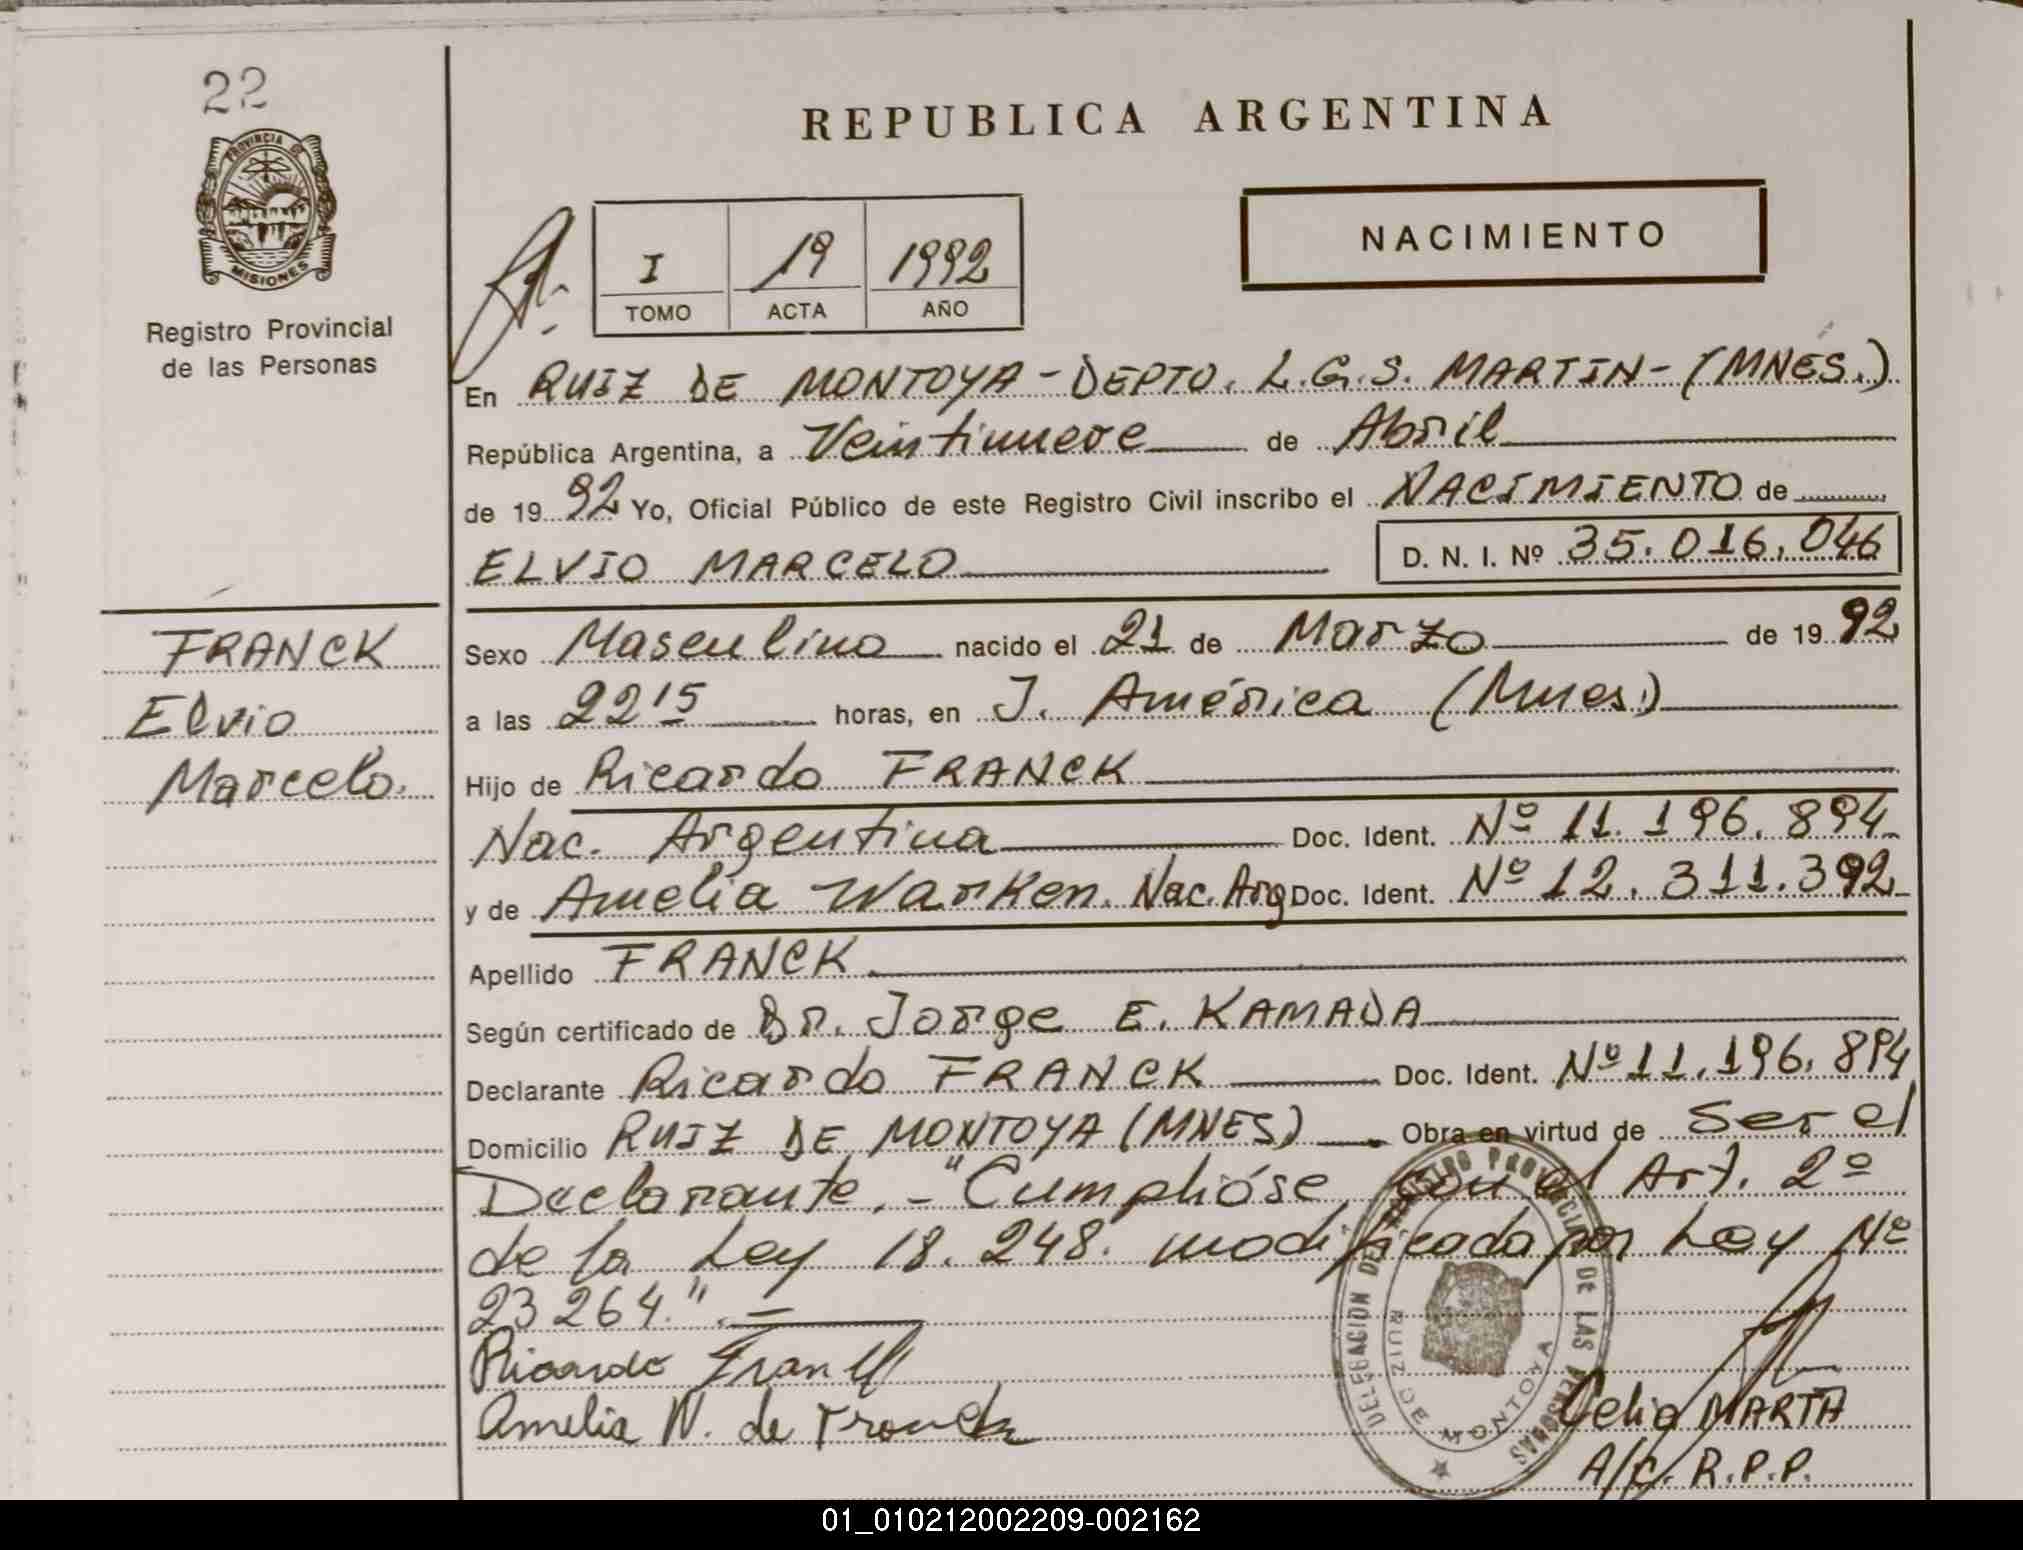 22
PROVINCIA DE
MISIONES
Registro Provincial
de las Personas
REPUBLICA ARGENTINA
I 19 1992
TOMO ACTA AÑO
NACIMIENTO
En RUIZ DE MONTOYA - DEPTO. L.G.S. MARTIN - (MNES.)
República Argentina, a Veintinueve de Abril
de 19 92 Yo, Oficial Público de este Registro Civil inscribo el NACIMIENTO de
ELVIO MARCELO D. N. I. Nº 35.016.046
FRANCK
Elvio
Marcelo.
Sexo Masculino nacido el 21 de Marzo de 19 92
a las 22 15 horas, en J. América (Mnes.)
Hijo de Ricardo FRANCK
Nac. Argentina Doc. Ident. Nº 11.196.894
y de Amelia Warken. Nac. Arg Doc. Ident. Nº 12.311.392
Apellido FRANCK
Según certificado de Dr. Jorge E. KAMADA
Declarante Ricardo FRANCK Doc. Ident. Nº 11.196.894
Domicilio RUIZ DE MONTOYA (MNES) Obra en virtud de Ser el
Declarante. - "Cumplióse con el Art. 2º
de la Ley 18.248. modificada por Ley Nº
23264." . =
Ricardo Franck
Amelia W. de Franck
DELEGACION DEL REGISTRO PROVINCIAL DE LAS PERSONAS
RUIZ DE MONTOYA
Celia MARTA
A/C. R.P.P.
01_010212002209-002162